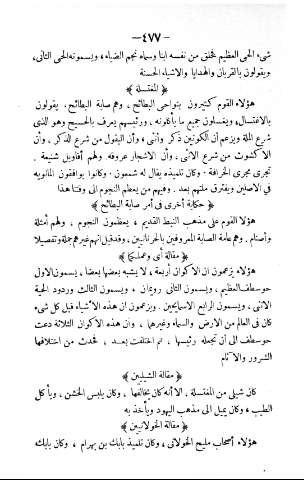 — ٤٧٧ —
شيء الحي العظيم فخلق من نفسه ابنا وسماه نجم الضياء، ويسمونه الحي الثاني،
ويقولون بالقربان والهدايا والاشياء الحسنة
﴿ المغتسلة ﴾
هؤلاء القوم كثيرون بنواحي البطائح، وهم صابة البطائح، يقولون
بالاغتسال، ويغسلون جميع ما يأكلونه، ورئيسهم يعرف بالحسيح وهو الذي
شرع الملة ويزعم أن الكونين ذكر وأنثى، وأن البقول من شرع الذكر، وأن
الاكشوث من شرع الانثى، وأن الاشجار عروقه. ولهم أقاويل شنيعة.
تجري مجرى الخرافة. وكان تلميذه يقال له شمعون، وكانوا يوافقون المانوية
في الاصلين ويفترق ملتهم بعد. وفيهم من يعظم النجوم الى وقتنا هذا
﴿ حكاية أخرى في أمر صابة البطائح ﴾
هؤلاء القوم على مذهب النبط القديم، يعظمون النجوم، ولهم أمثلة
وأصنام. وهم عامة الصابة المعروفين بالحرنانيين، وقد قيل انهم غيرهم جملة وتفصيلا
﴿ مقالة أي وعملكيا ﴾
هؤلاء يزعمون ان الاكوان أربعة، لا يشبه بعضها بعضا، يسمون الاول
حوسطف العظيم، ويسمون الثاني رويمان، ويسمون الثالث وردود الحية
الانثى، ويسمون الرابع الاسايحين. ويزعمون ان هذه الاشياء قبل كل شيء
كان في العالم من الارض والسماء وغيرهما، وان هذه الاكوان الثلاثة دعت
حوسطف الى أن تجعله رئيسها، ثم اختلفت بعد، فحدث من اختلافها
الشرور والآثام
﴿ مقالة الشيليين ﴾
كان شيلي من المغتسلة، الا أنه كان يخالفها، وكان يلبس الخشن، ويأكل
الطيب، وكان يميل الى مذهب اليهود ويأخذ به
﴿ مقالة الخولانيين ﴾
هؤلاء أصحاب مليح الخولاني، وكان تلميذ بابك بن بهرام، وكان بابك